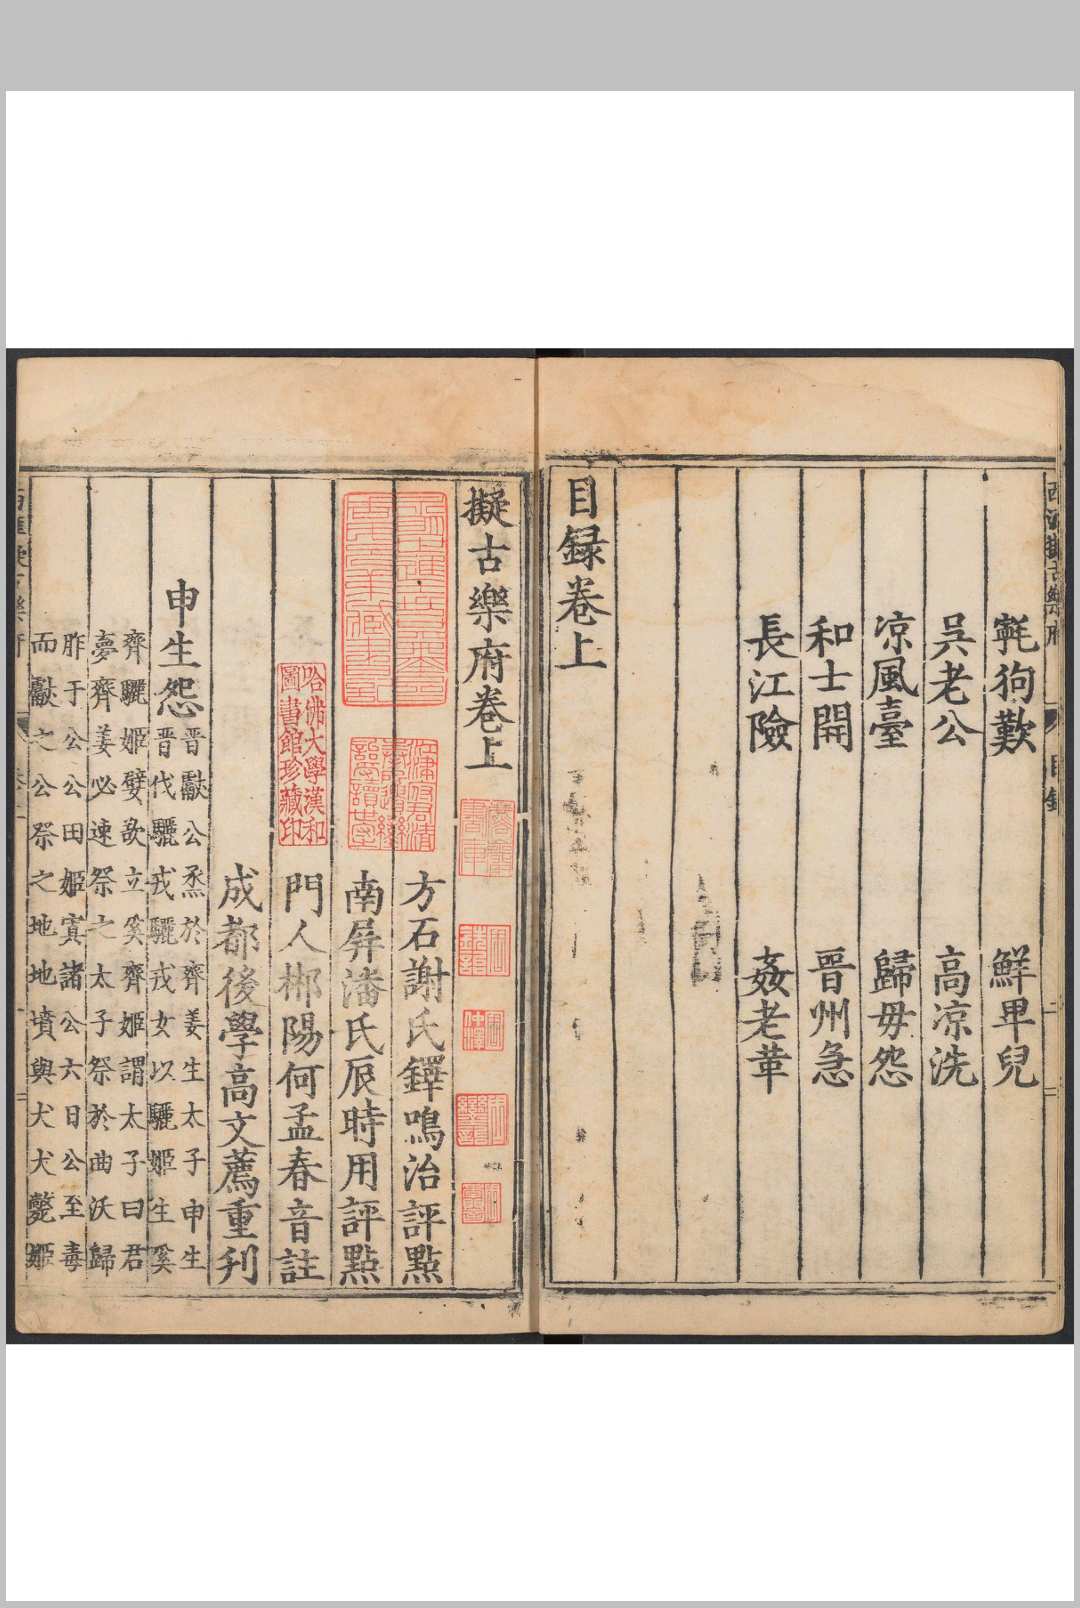 氀狗歎　鮮卑兒
吳老公　高凉洗
凉風臺　歸毋怨
和士開　晉州急
長江險　姦老革
目録卷上
擬古樂府卷上
方石謝氏鐸鳴治評點
南屏潘氏辰時用評點
門人郴陽何孟春音註
成都後學高文薦重刋
哈佛大學漢和
圖書館珍藏印
申生怨
晋獻公烝於齊姜生太子申生
晋伐驪戎驪戎女以驪姬生奚
齊驪姬嬖欲立奚齊姬謂太子曰君
夢齊姜必速祭之太子祭於曲沃歸
胙于公公田姬寘諸公六日公至毒
而獻之公祭之地地墳與犬犬斃姬